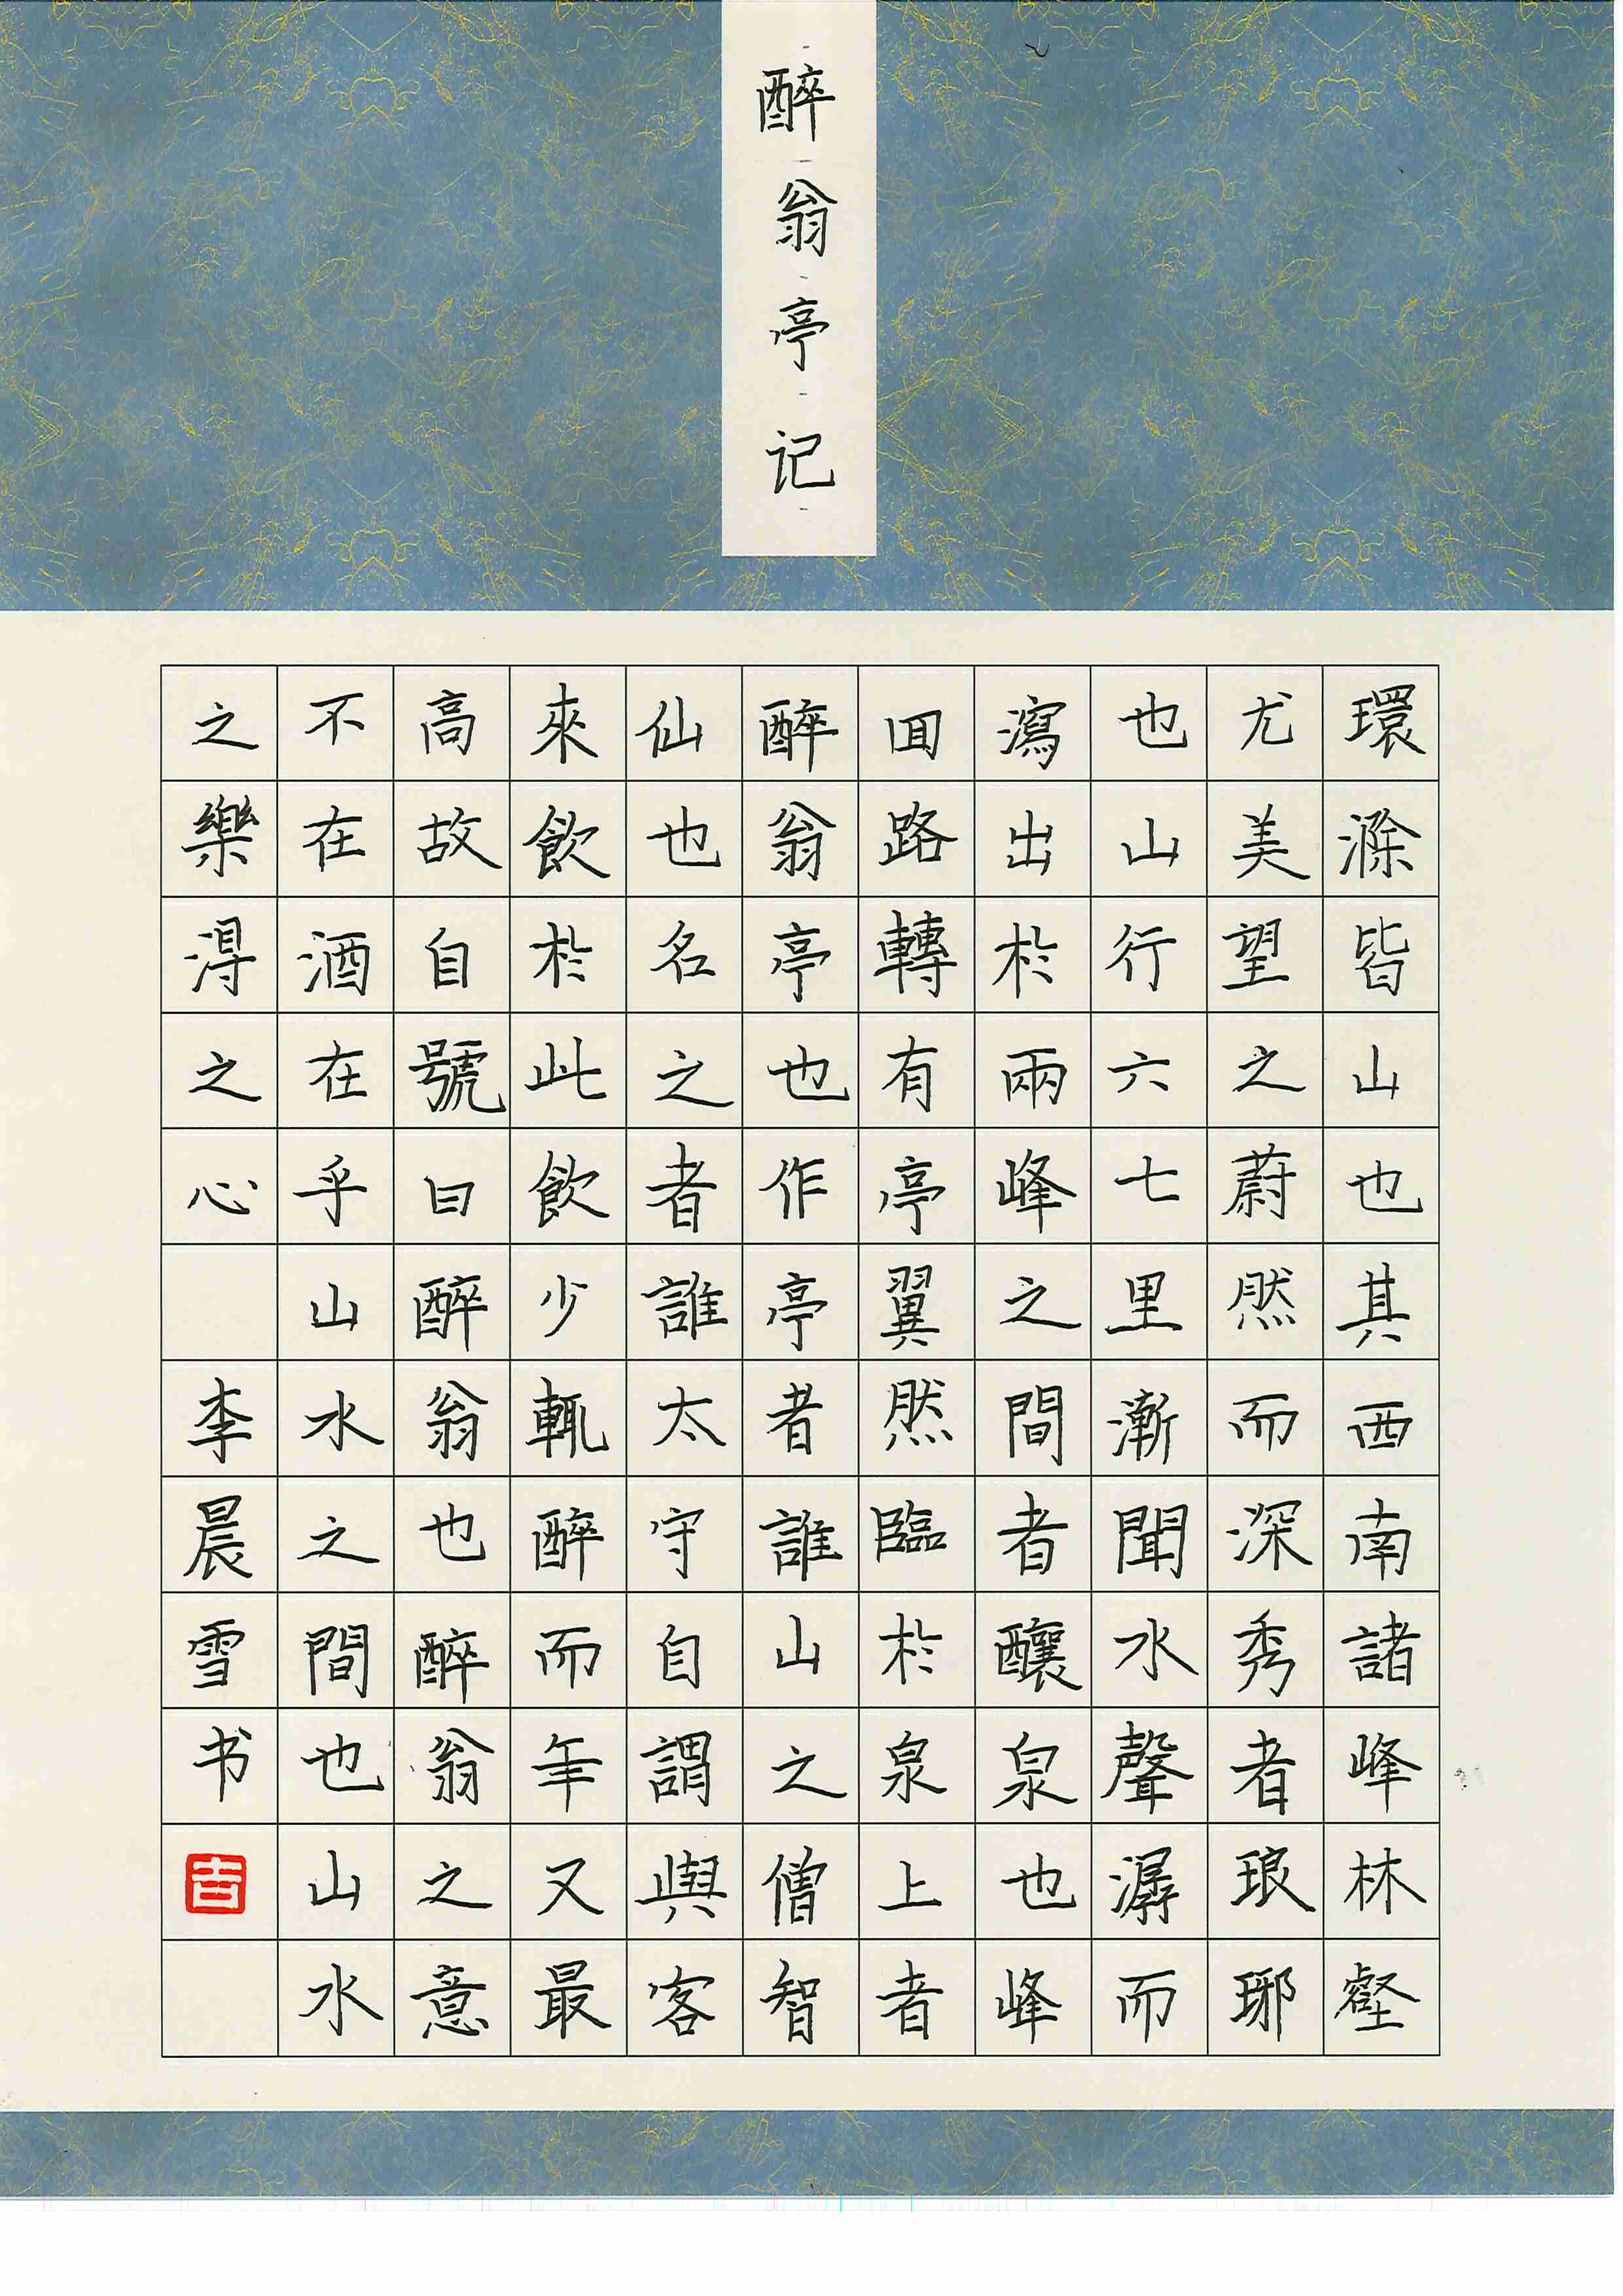 醉翁亭记
環滁皆山也其西南諸峰林壑
尤美望之蔚然而深秀者琅琊
也山行六七里漸聞水聲潺而
瀉出於兩峰之間者釀泉也峰
回路轉有亭翼然臨於泉上者
醉翁亭也作亭者誰山之僧智
仙也名之者誰太守自謂與客
來飲於此飲少輒醉而年又最
高故自號曰醉翁也醉翁之意
不在酒在乎山水之間也山水
之樂得之心
李晨雪书
吉